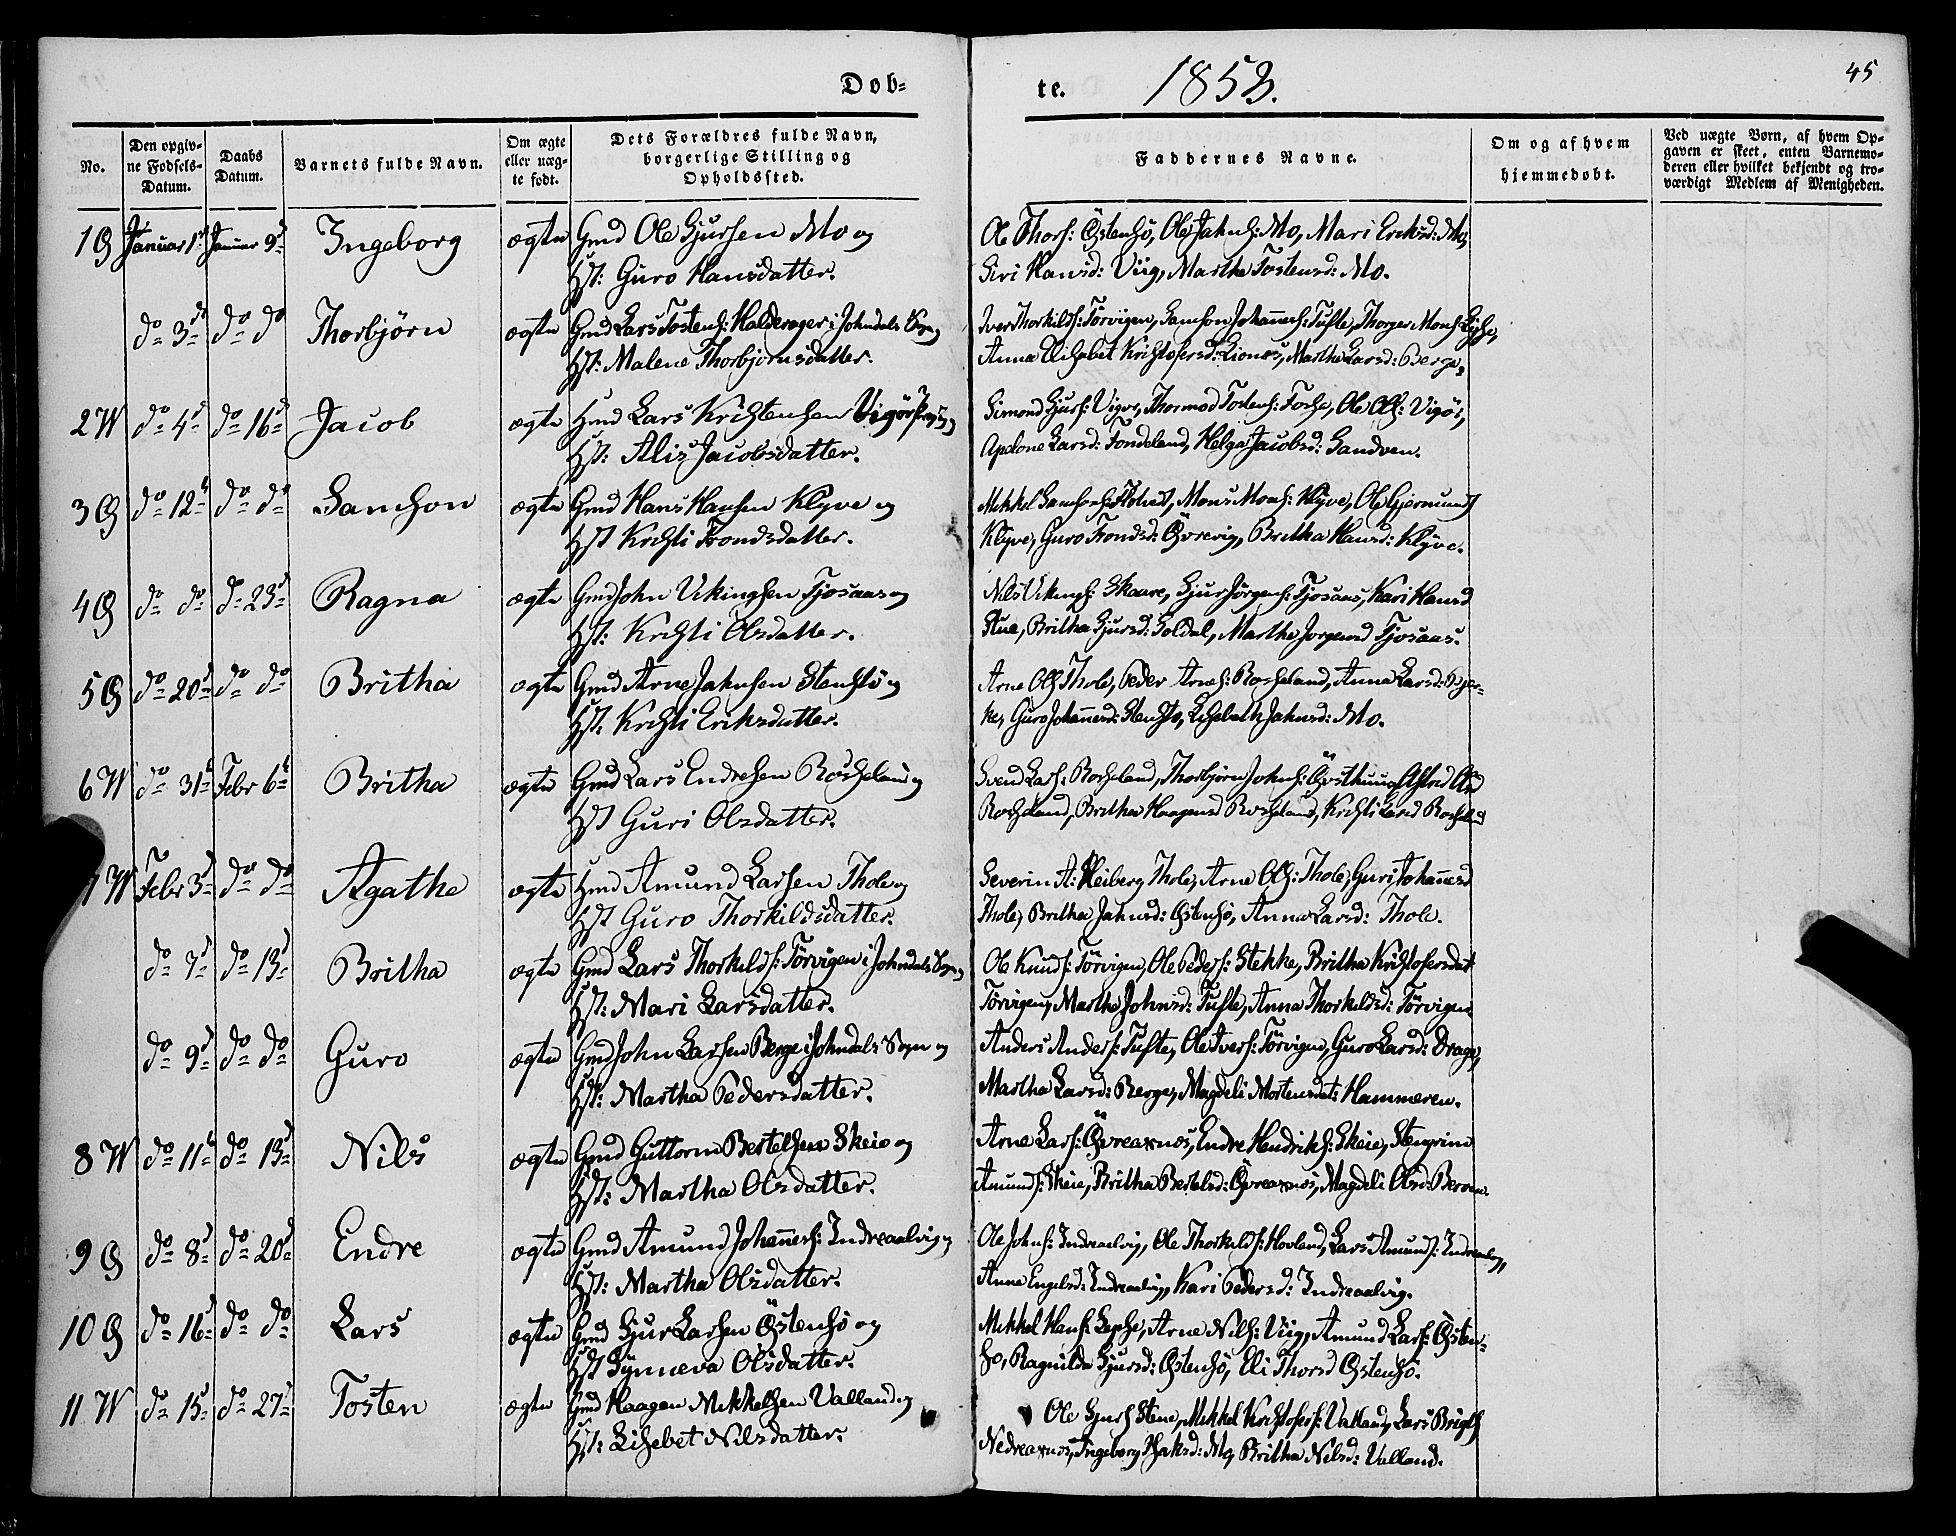 Dob-
te. 1853. 45
No.
Den opgiv-
ne Fodsels-
Datum.
Daabs
Datum.
Barnets fulde Navn.
Om ægte
eller uæg-
te født.
Dets Forældres fulde Navn,
borgerlige Stilling og
Opholdssted.
Faddernes Navne.
Om og af hvem
hjemmedøbt.
Ved uægte Børn, af hvem Op-
gaven er skeet, enten Barnemo-
deren eller hvilket bekjendt og tro-
værdigt Medlem af Menigheden.
1 Januar 1 Januar 9 Ingeborg ægte Gmd Ole Sjursen Mo og
Hst: Guro Hansdatter.
Ole Thors: Östensö, Ole Jahns: Mo, Mari Eriksd: Mo,
Siri Hansd: Viig, Martha Tostensd: Mo.
do 3 do do Thorbjörn ægte Gmd Lars Tostens: Halderager i Johndals Sogn
Hst: Malene Thorbjornsdatter.
Iver Thorkilds: Törvigen, Samson Johannes: Tufte, Thorger Mons:
Anna Elisabet Kristofersd: Lionæs, Martha Larsd: Berge,
2 W do 4 do 16 Jacob ægte Hmd Lars Kristensen Vigör
Hst: Alis Jacobsdatter.
Simond Sjurs: Vigör, Thormod Tostens: Fosse, Ole Ols: Vigör,
Apelone Larsd: Tondeland, Helga Jacobsd: Sandven.
3 do 12 do do Samson ægte Gmd Hans Hansen Klyve og
Hst Kristi Trondsdatter.
Mikkel Samsons: Mons Mons: Klyve, Ole Gjermunds
Klyve, Guro Trondsd: Övrevig, Britha Hansd: Klyve.
4 do do do 23 Ragna ægte Gmd John Vikingsen Tjosaas og
Hst: Kristi Olsdatter.
Nils Vikings: Skaare, Sjur Jörgens: Tjosaas, Kari Hansd
Stue, Britha Sjursd: Soldal, Martha Jorgensd Tjosaas.
5 do 20 do do Britha ægte Gmd Arne Jahnsen Stenstö og
Hst: Kristi Eriksdatter.
Arne Ols Thole, Peder Arnes: Rosseland, Anna Larsd: Bjer-
ke, Guro Johannesd: Stensto, Lisebeth Jahnsd: Mo.
6 W do 31 Febr 6 Britha ægte Gmd Lars Endresen Rosseland og
Hst Guri Olsdatter.
Svend Lars: Rosseland, Thorbjörn Johns: Östhuus,
Rosseland, Britha Haagensd Rosseland, Kristi Larsd Rosseland
7 W Febr 3 do do Agathe ægte Hmd Amund Larsen Thole og
Hst Guro Thorkildsdatter.
Severin A: Heiberg Thole, Arne Ols: Thole, Guri Johannesd
Thole, Britha Jahnsd: Östensö, Anna Larsd: Thole.
do 7 do 13 Britha ægte Gmd Lars Thorkilds: Törvigen i Johndals Sogn
Hst: Mari Larsdatter.
Ole Knuds: Törvigen, Ole Peders: Stekke, Britha Kristofersdat
Törvigen, Martha Johnsd: Tufte, Anna Thorkildsd: Törvigen
do 9 do do Guro ægte Gmd John Larsen Berge i Johndals Sogn og
Hst: Martha Pedersdatter.
Anders Anders: Tufte, Ole Ivers: Törvigen, Guro Larsd: Drage,
Martha Larsd: Berge, Magdeli Mortensdat: Hammeren.
8 W do 11 do 13 Nils ægte Gmd Guttorm Bertelsen Skeie og
Hst: Martha Olsdatter.
Arne Lars: Övreaxnös, Endre Hendriks: Skeie, Stengrim
Amunds: Skeie, Britha Bertelsd: Övreaxnös, Magdeli Olsd: Berven.
9 do 8 do 20 Endre ægte Gmd Amund Johannes: Indreaalvig
Hst: Martha Olsdatter.
Ole Johns: Indreaalvig, Ole Thorkilds: Hovland, Lars Amunds: Indreaalvig,
Anna Engelsd: Indreaalvig, Kari Pedersd: Indreaalvig.
10 do 16 do do Lars ægte Gmd Sjur Larsen Östensö og
Hst Synneva Olsdatter.
Mikkel Hans: Lepsø, Arne Nils: Viig, Amund Lars: Östen-
sö, Ragnilda Sjursd: Östensö, Eli Thorsd Östensö.
11 W do 15 do 27 Tosten ægte Gmd Haagen Mikkelsen Valland og
Hst: Lisebet Nilsdatter.
Ole Sjurs Steine, Mikkel Kristofers: Valland, Lars
Nedreaxnös, Ingeborg Isaksd: Mo, Britha Nilsd: Valland.